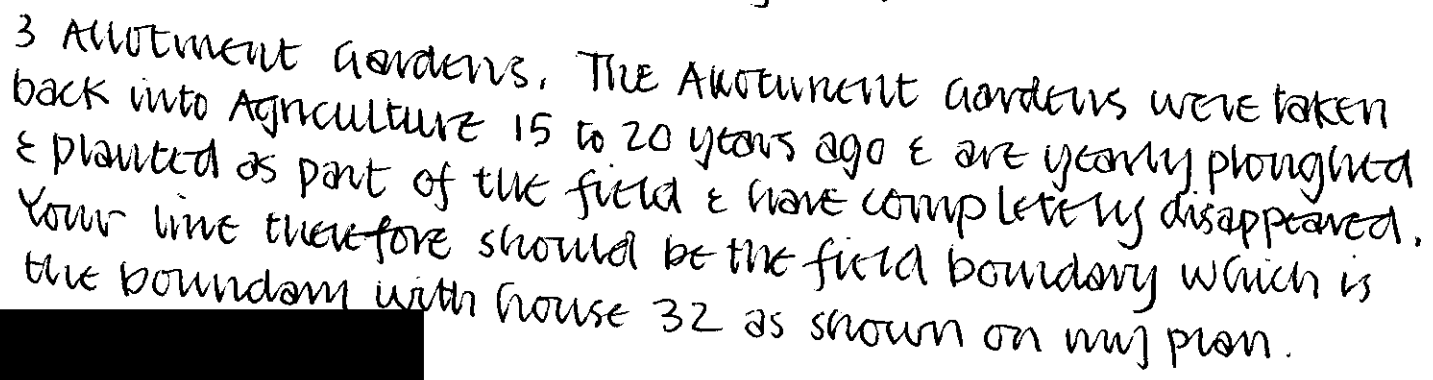 3 Allotment Gardens. The Allotment Gardens were taken
back into Agriculture 15 to 20 years ago & are yearly ploughed
& planted as part of the field & have completely disappeared.
Your line therefore should be the field boundary which is
the boundary with house 32 as shown on my plan.